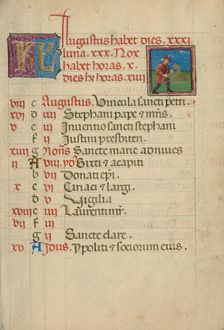 KL Augustus habet dies. xxxi
luna. xxx. Nox
habet horas. x
Dies hȝ horas. xiiij
viij c Augustus. Vincula sancti petri.
xvj d Stephani pape et m̄ris.
v e Inventio sancti stephani
f Justini presbiteri
g Nonas Sancte marie ad nives
ij A viij. ydus Sixti et
b Donati epi.
x c Ciriaci et largi.
d Vigilia
xviij e Laurentii
vij f
g Sancte clare.
xv A Idus. Ypoliti et sociorum eius.